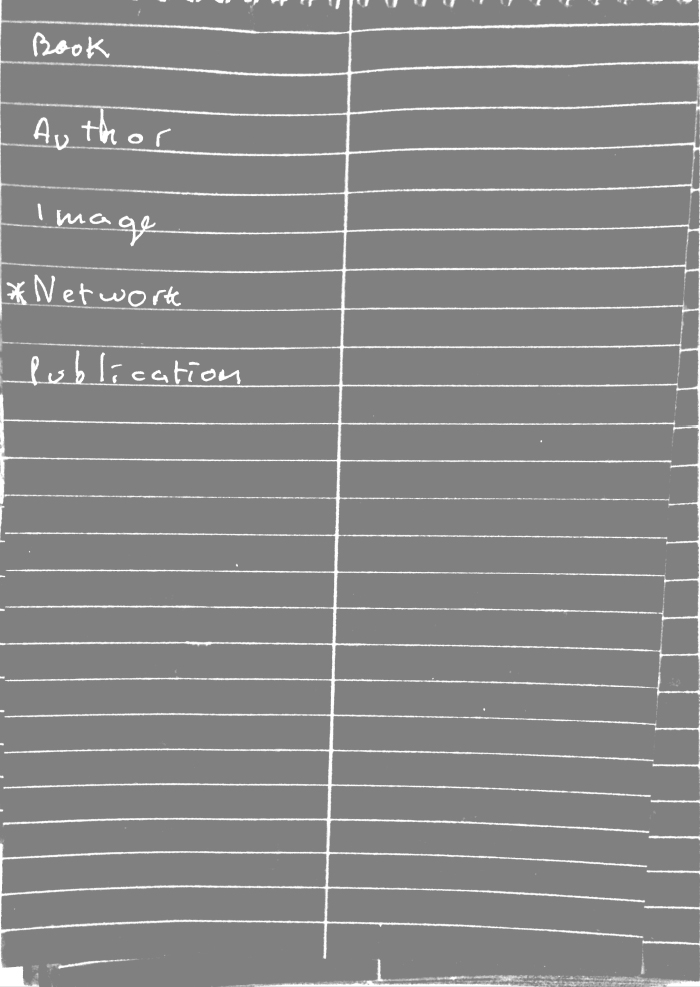 Book
Author
Image
*Network
Publication